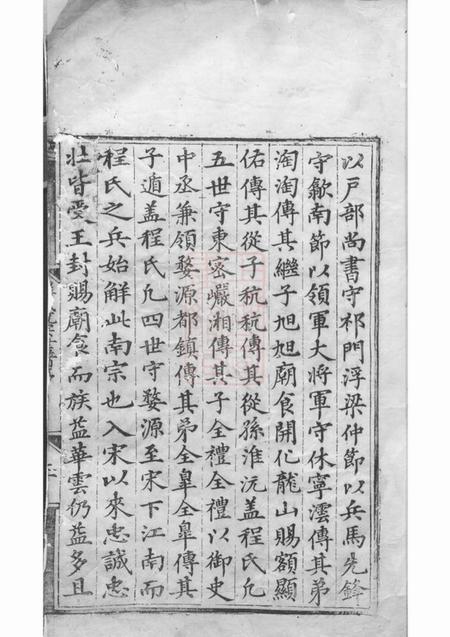 以戶部尚書守祁門浮梁仲節以兵馬先鋒
守歙南節以領軍大將軍守休寧澐傳其弟
淘淘傳其繼子旭旭廟食開化龍山賜額顯
佑傳其從子秔秔傳其從孫淮沅盖程氏凡
五世守東密巖湘傳其子全禮全禮以御史
中丞兼領婺源都鎮傳其弟全臯全臯傳其
子遁盖程氏凡四世守婺源至宋下江南而
程氏之兵始解此南宗也入宋以來忠誠忠
壯皆受王封賜廟食而族益華雲仍益多且